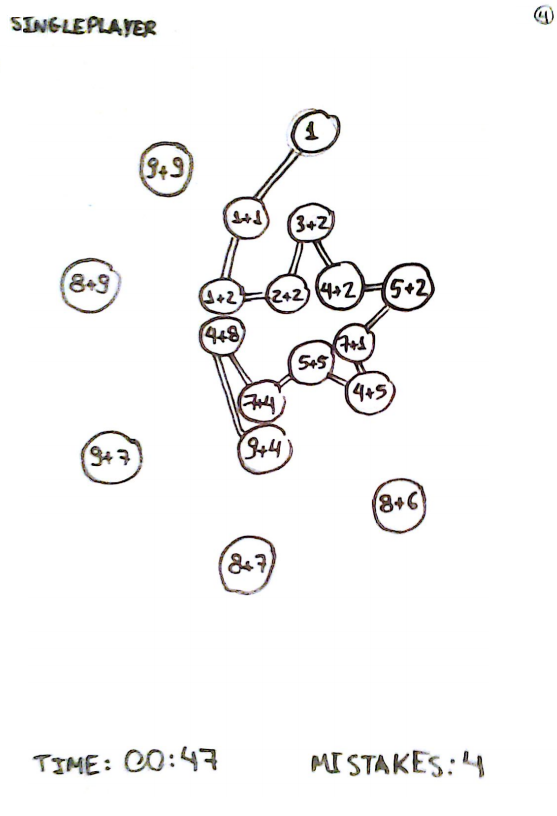 SINGLEPLAYER
4
1
9+9
1+1
3+2
8+9
1+2
2+2
4+2
5+2
4+8
7+1
5+5
7+4
4+5
9+4
9+7
8+6
8+7
TIME: 00:47
MISTAKES: 4